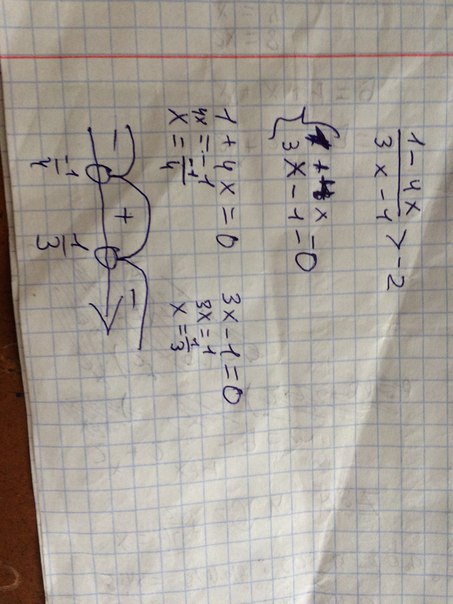 1 - 4x / 3x - 1 > -2
{ 1 + 4x = 0
3x - 1 = 0
1 + 4x = 0   3x - 1 = 0
4x = -1   3x = 1
x = -1/4   x = 1/3
- + -
-1/4   1/3